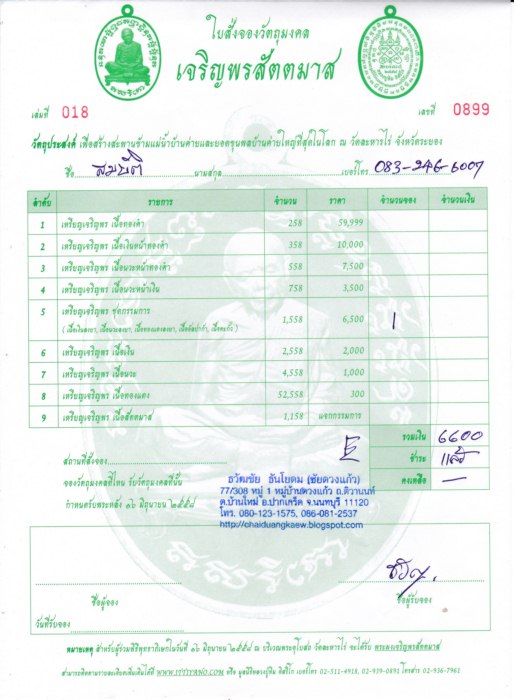 ใบสั่งจองวัตถุมงคล
เจริญพรสัตตมาส
เล่มที่ 018
เลขที่ 0899
วัตถุประสงค์ เพื่อสร้างสะพานข้ามแม่น้ำบ้านค่ายและยอดขุนพลบ้านค่ายใหญ่ที่สุดในโลก ณ วัดละหารไร่ จังหวัดระยอง
ชื่อ สมบัติ นามสกุล เบอร์โทร 083-246-6007
ลำดับ รายการ จำนวน ราคา จำนวนจอง จำนวนเงิน
1 เหรียญเจริญพร เนื้อทองคำ 258 59,999
2 เหรียญเจริญพร เนื้อเงินหน้าทองคำ 358 10,000
3 เหรียญเจริญพร เนื้อนวะหน้าทองคำ 558 7,500
4 เหรียญเจริญพร เนื้อนวะหน้าเงิน 758 3,500
5 เหรียญเจริญพร ชุดกรรมการ 1,558 6,500 1
( เนื้อเงินลงยา, เนื้อนวะลงยา, เนื้อทองแดงลงยา, เนื้ออัลปาก้า, เนื้อตะกั่ว )
6 เหรียญเจริญพร เนื้อเงิน 2,558 2,000
7 เหรียญเจริญพร เนื้อนวะ 4,558 1,000
8 เหรียญเจริญพร เนื้อทองแดง 52,558 300
9 เหรียญเจริญพร เนื้อสัตตมาส 1,158 แจกกรรมการ
รวมเงิน 6600
ชำระ แล้ว
คงเหลือ —
สถานที่สั่งจอง
จองวัตถุมงคลที่ไหน รับวัตถุมงคลที่นั่น
กำหนดรับพระหลัง ๑๖ มิถุนายน ๒๕๕๘
ธวัฒชัย ธันโยดม (ชัยดวงแก้ว)
77/308 หมู่ 1 หมู่บ้านดวงแก้ว ถ.ติวานนท์
ต.บ้านใหม่ อ.ปากเกร็ด จ.นนทบุรี 11120
โทร. 080-123-1575, 086-081-2537
http://chaiduangkaew.blogspot.com
ชื่อผู้จอง
ชื่อผู้รับจอง
วันที่รับจอง
หมายเหตุ สำหรับผู้ร่วมพิธีพุทธาภิเษกในวันที่ ๑๖ มิถุนายน ๒๕๕๘ ณ บริเวณพระอุโบสถ วัดละหารไร่ จะได้รับ พระผงเจริญพรสัตตมาส
สามารถติดตามรายละเอียดเพิ่มเติมได้ที่ หรือ มูลนิธิหลวงปู่ทิม อิสริโก เบอร์โทร 02-511-4918, 02-939-0891 โทรสาร 02-936-7961